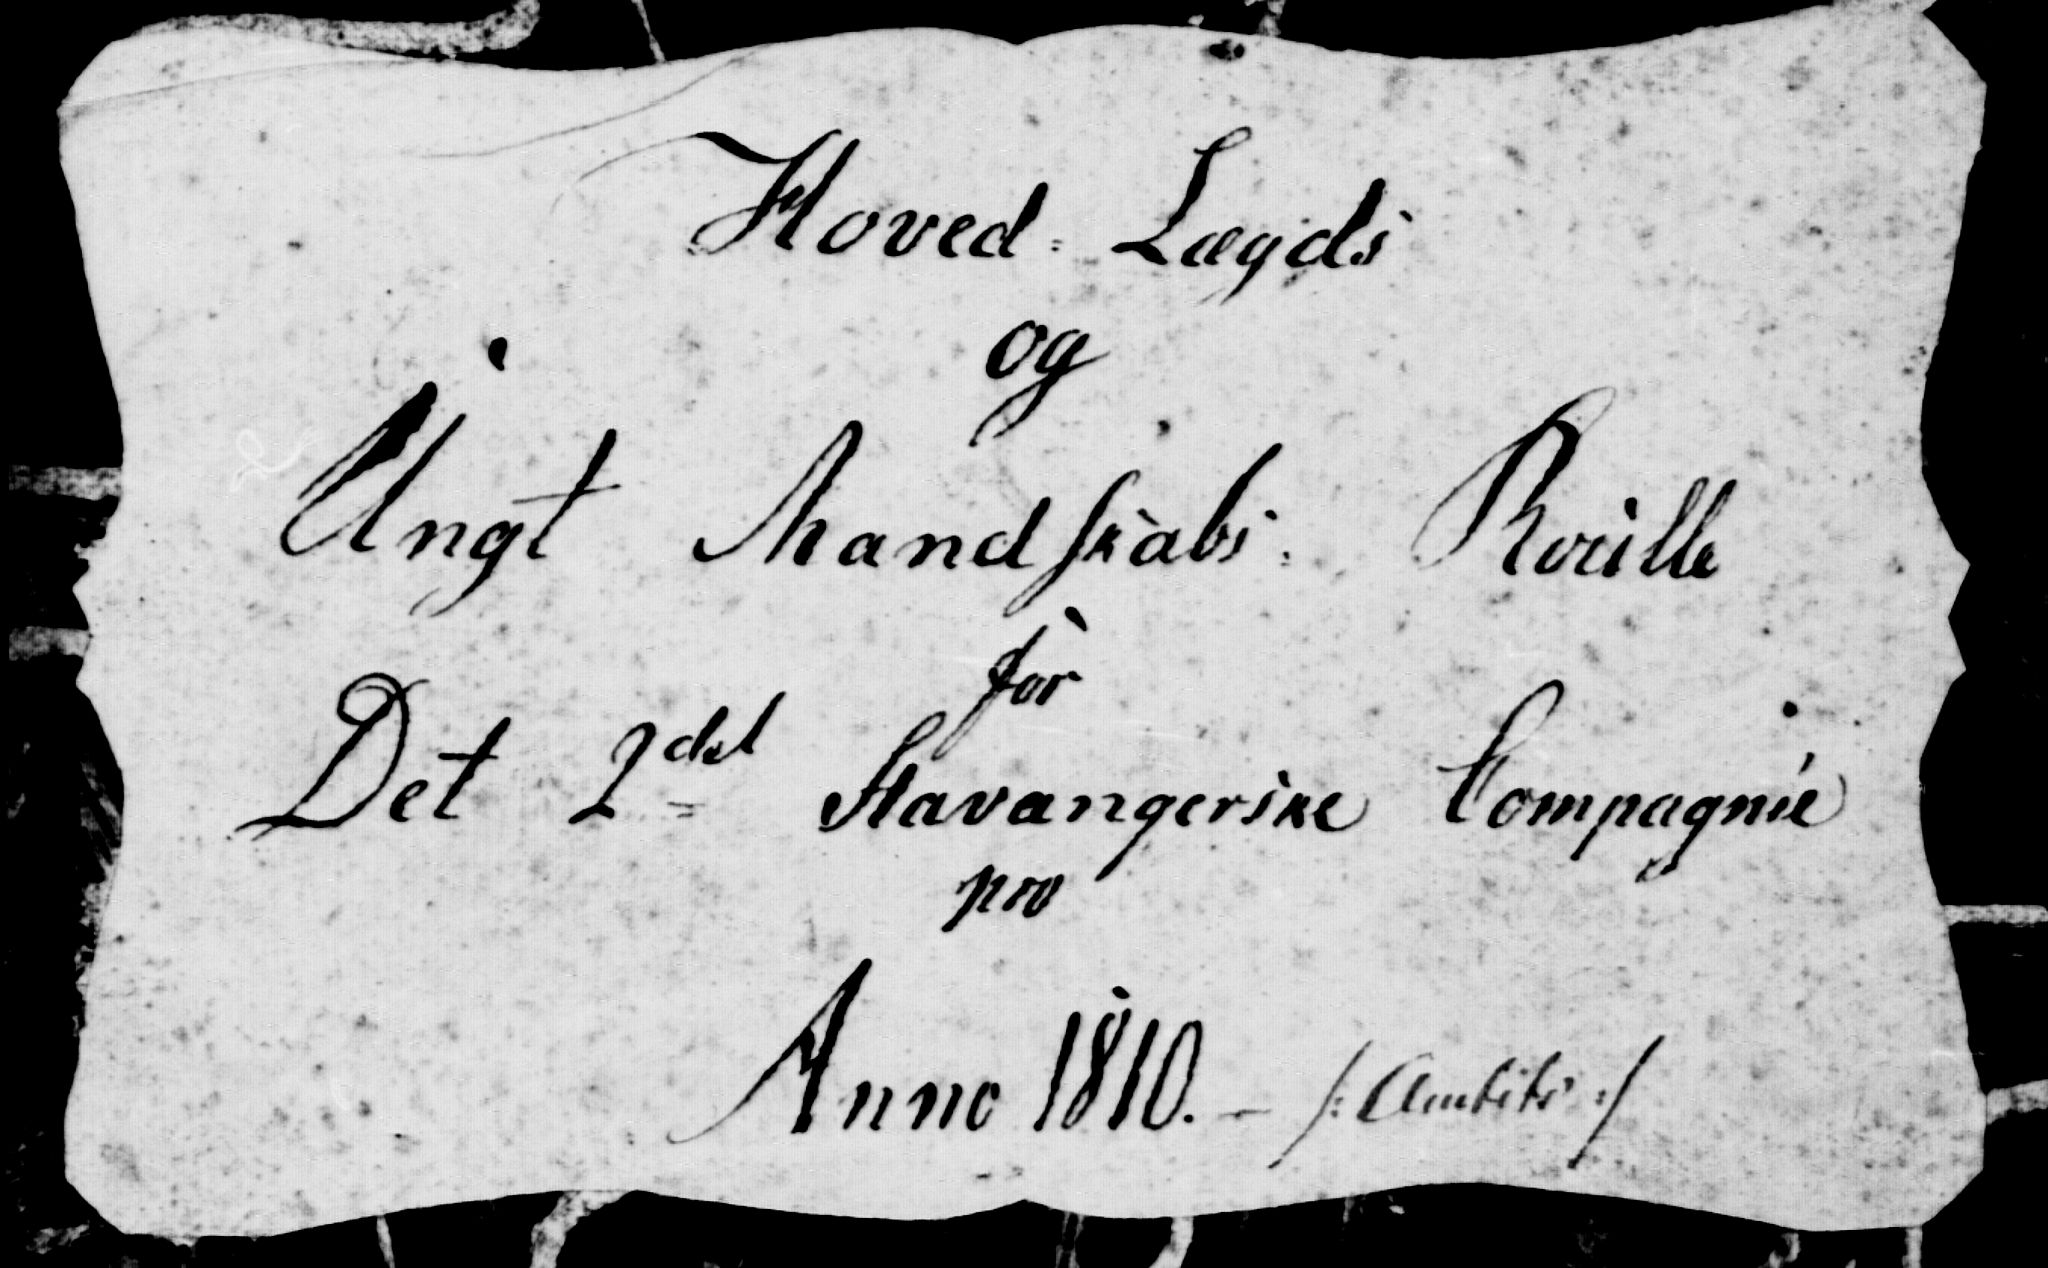 Hoved = Lægds
og
Ungt Mandskabs = Roulle
for
Det 2det Stavangerske Compagnie
pro
Anno 1810. – /: Amtets :/